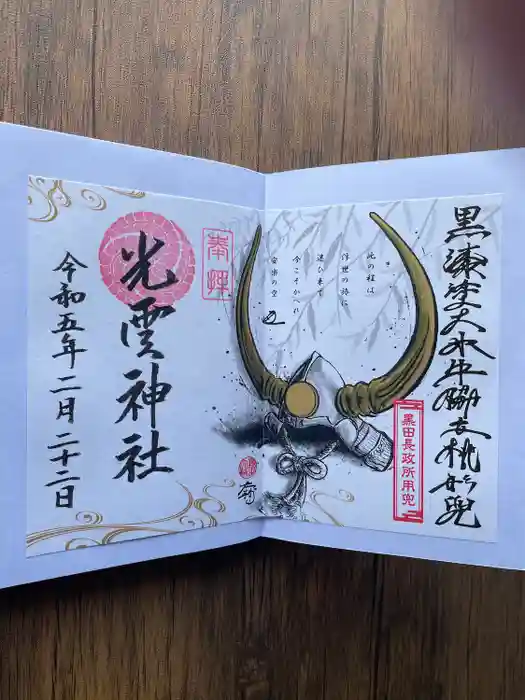 黒漆塗大水牛脇立桃形兜
黒田長政所用兜
此の程は
浮世の旅に
迷ひ来て
今こそかへれ
安楽の空
奉拝
光雲神社
令和五年二月二十二日